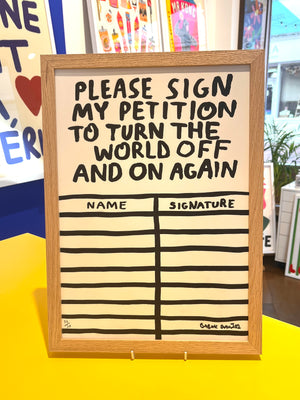 PLEASE SIGN
MY PETITION
TO TURN THE
WORLD OFF
AND ON AGAIN
NAME
SIGNATURE